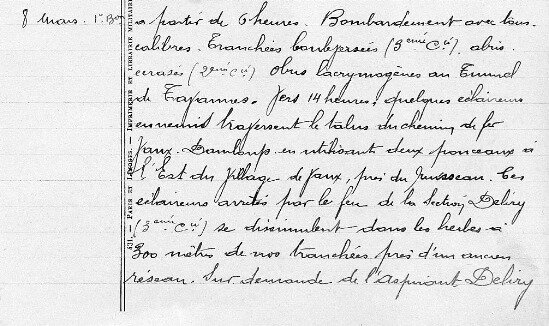 8 Mars. 1er Bon à partir de 6 heures. Bombardement avec tous
calibres. Tranchées bouleversées (3ème Cie), abris
écrasés (2ème Cie) obus lacrymogènes au Tunnel
de Tavannes. Vers 14 heures, quelques éclaireurs
ennemis traversent le talus du chemin de fer
Vaux. Damloup en utilisant deux ponceaux à
l'Est du Village de Vaux, près du ruisseau. Ces
éclaireurs arrêtés par le feu de la Section Deliry
(3ème Cie) se dissimulent dans les herbes à
300 mètres de nos tranchées près d'un ancien
réseau. Sur demande de l'aspirant Deliry
511. — PARIS ET LIMOGES. — IMPRIMERIE ET LIBRAIRIE MILITAIRE